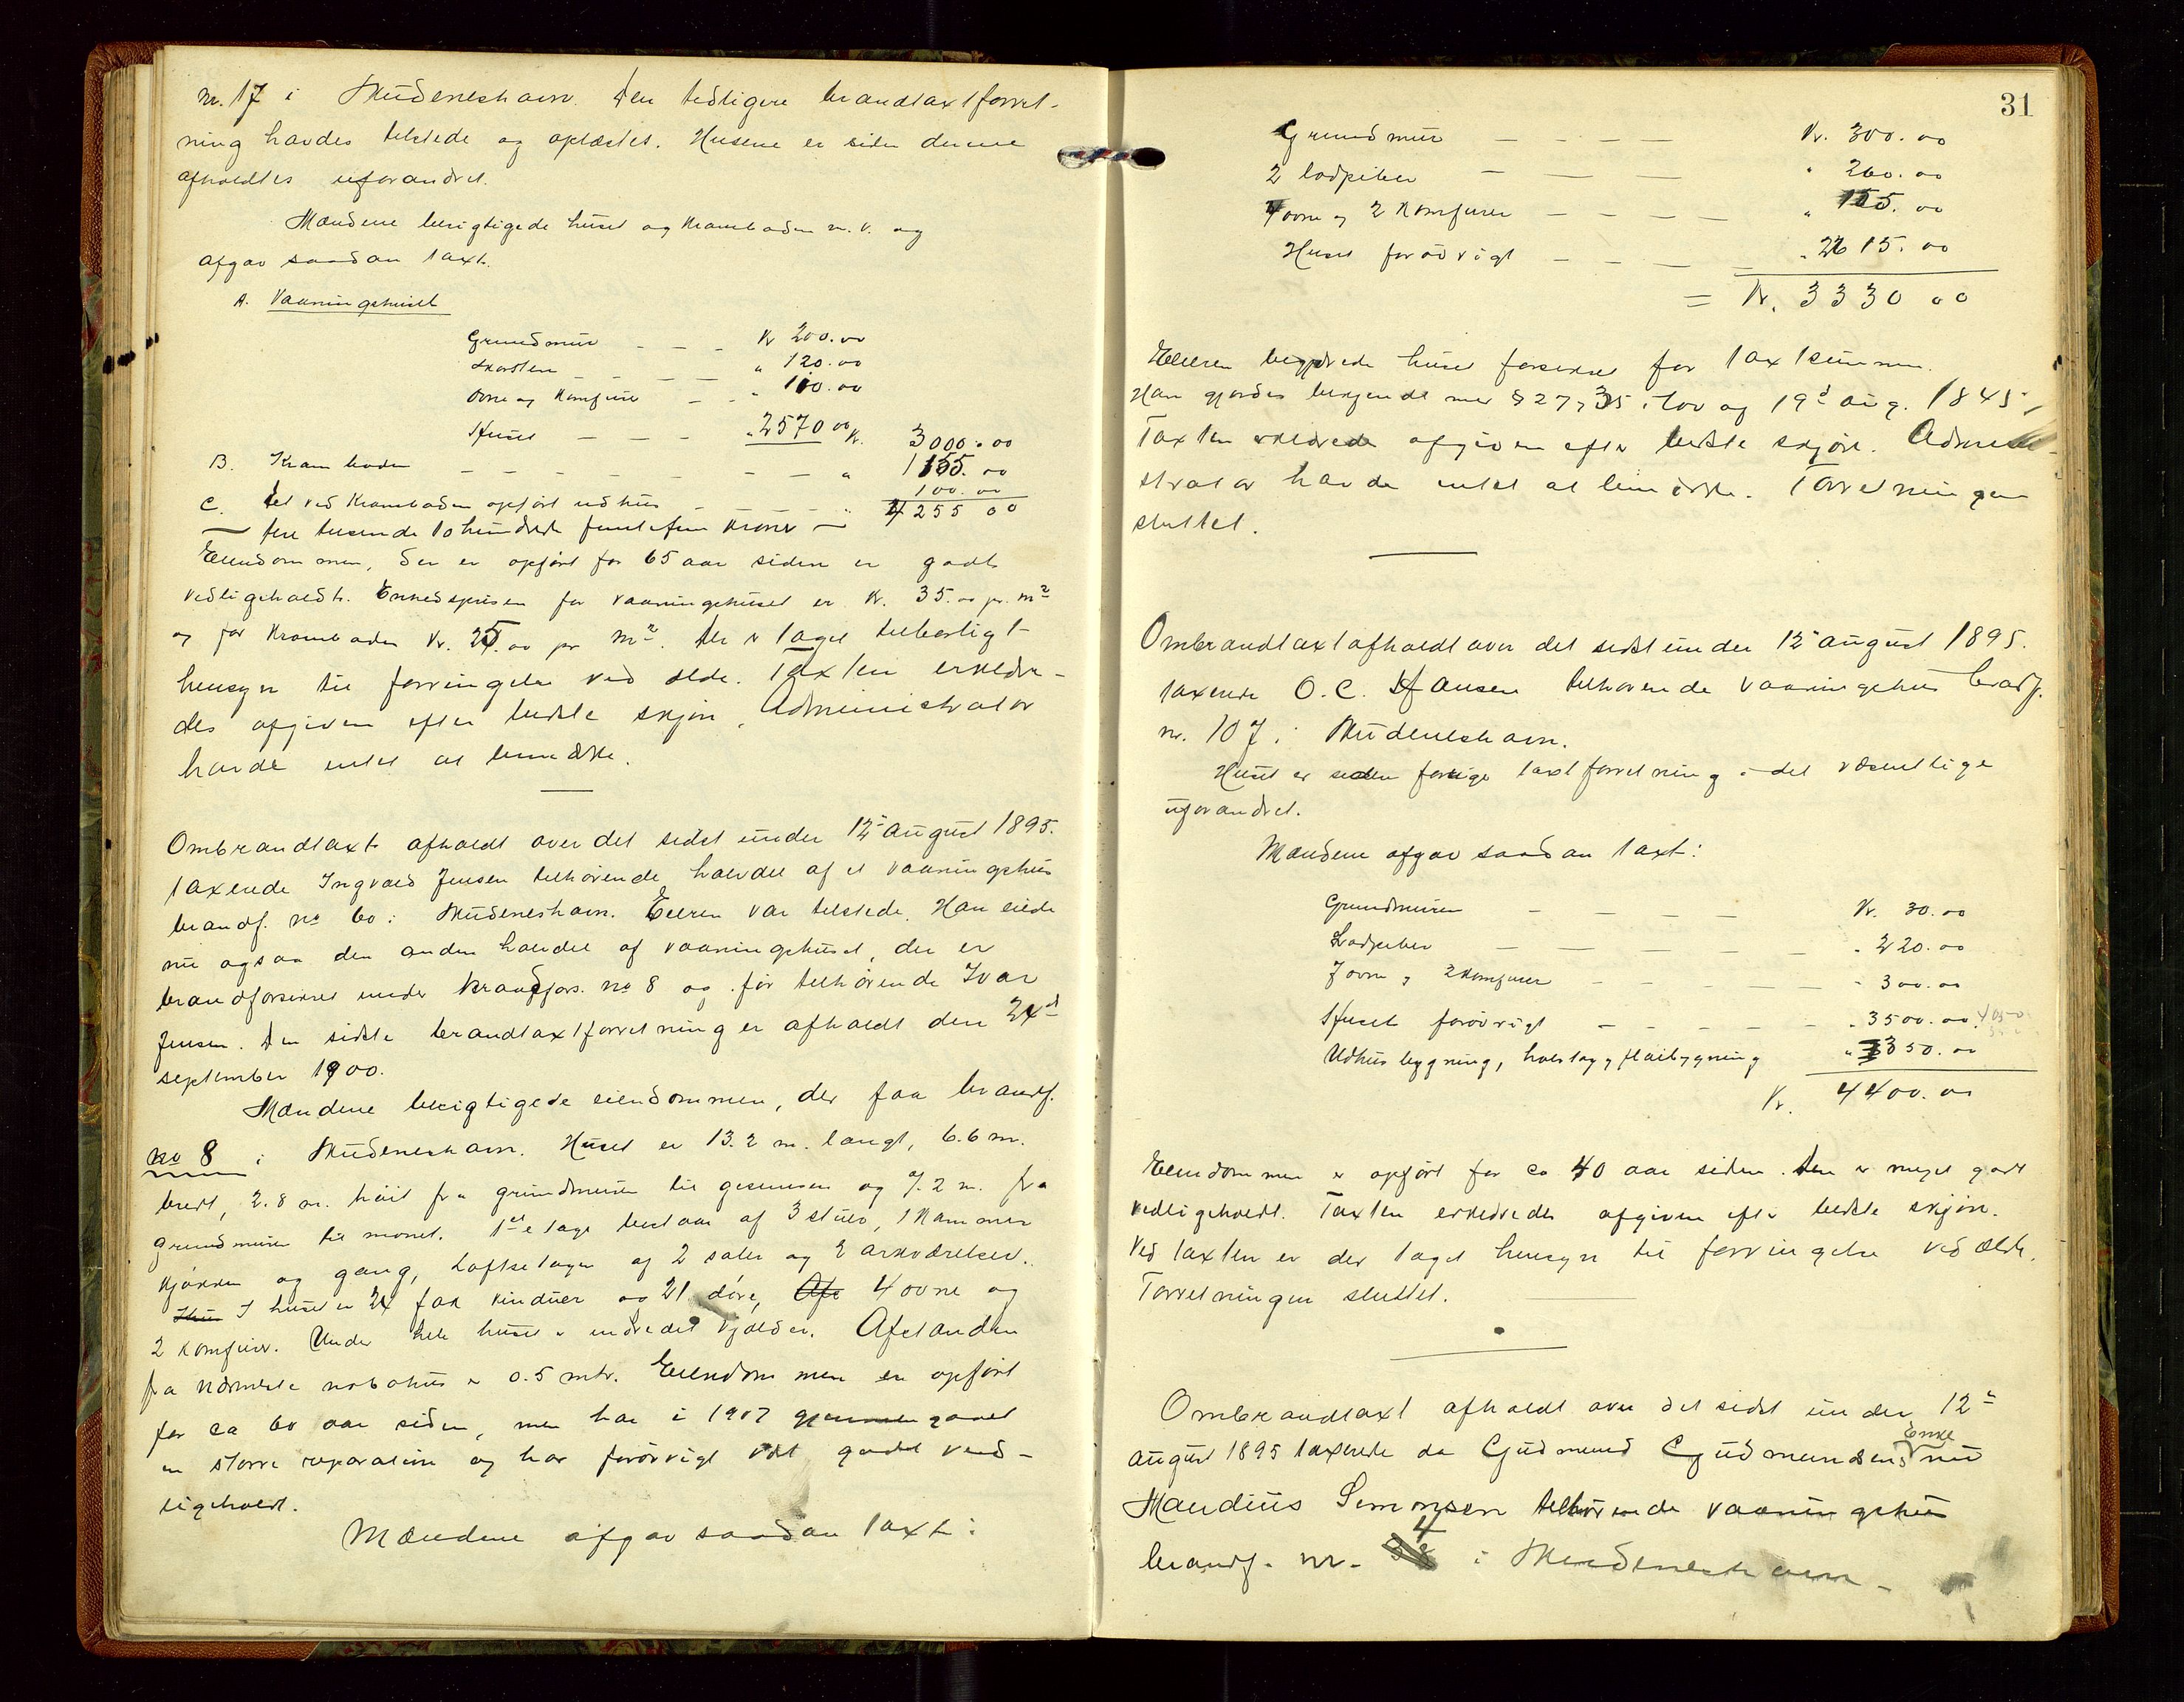 nr. 17 i Skudeneshavn. Den tidligere brandtaxtforret-
ning havdes tilstede og oplæstes. Husene er siden denne
afholdtes uforandret.
Mændene besigtigede huset og Kramboden m.v. og
afgav saadan taxt.
A. Vaaningshuset
Grundmur - - - Kr 200.00
Skorsten - - - - " 120.00
Ovne og Komfurer - - " 110.00
Huset - - - " 2570 00 Kr. 3000.00
B. Kramboden - - - - - - - " 1155.00
C. Det ved Kramboden opført udhus - - - " 100.00
— fire tusende tohundrede femtifem kroner — 4255 00
Eiendommen, der er opført for 65 aar siden er godt
vedligeholdt. Enhedsprisen for vaaningshuset er Kr. 35.00 pr. m²
og for Kramboden Kr. 25.00 pr m². Der er taget tilbørligt
hensyn til forringelse ved ælde. Taxten erklære-
des afgiven efter bedste skjøn. Administrator
havde intet at bemærke.
Ombrandtaxt afholdt over det sidst under 12te august 1895.
taxerede Ingvald Jensen tilhørende halvdel af et vaaningshus
brandf. no 60 i Skudeneshavn. Eieren var tilstede. Han eiede
nu ogsaa den anden halvdel af vaaningshuset, der er
brandforsikret under brandfors. no 8 og før tilhørende Ivar
Jensen. Den sidste brandtaxtforretning er afholdt den 24d
september 1900.
Mændene besigtigede eiendommen, der faar brandf.
no 8 i Skudeneshavn. Huset er 13.2 m. langt, 6.6 m.
bredt, 2.8 m. høit fra grundmuren til gesimsen og 7.2 m. fra
grundmuren til mønet. 1ste etage bestaar af 3 stuer, 1 Kammer
Kjøkken og gang, Loftsetagen af 2 saler og 2 arkværelser.
I huset er 24 fag vinduer og 21 døre, 4 ovne og
2 komfurer. Under hele huset er indredet Kjælder. Afstanden
fra nærmeste nabohus er 0.5 mtr. Eiendommen er opført
for ca 60 aar siden, men har i 1907 gjennemgaaet
en større reparation og har forøvrigt været godt ved-
ligeholdt.
Mændene afgav saadan taxt:
31
Grundmur - - - - Kr. 300.00
2 ladpiber - - - " 260.00
4 ovne og 2 Komfurer - - - - " 155.00
Huset forøvrigt - - - - " 2615.00
= Kr. 3330 00
Eieren begjærede huset forsikret for taxtsummen.
Han gjordes bekjendt med § 27, 35 i lov og 19d aug. 1845.
Taxten erklærede afgiven efter bedste skjøn. Admini-
strator havde intet at bemærke. Forretningen
sluttet.
Ombrandtaxt afholdt over det sidst under 12te august 1895.
taxerede O. C. Hansen tilhørende vaaningshus brandf.
nr. 107 i Skudeneshavn.
Huset er siden forrige taxtforretning i det væsentlige
uforandret.
Mændene afgav saadan taxt:
Grundmuren - - - - Kr. 30.00
Ladpiber - - - - - " 220.00
7 ovne og 2 Komfurer - - - - - - " 300.00
Huset forøvrigt - - - - - " 3500.00 4050
Udhusbygning, hvalstag og fløibygning " 350.00
Kr. 4400.00
Eiendommen er opført for ca 40 aar siden. Den er meget godt
vedligeholdt. Taxten erklæredes afgiven efter bedste skjøn.
Ved taxten er der taget hensyn til forringelse ved ælde.
Forretningen sluttet.
Ombrandtaxt afholdt over det sidst under 12te
august 1895 taxerede da Gudmund Gudmundsens Enke nu
Mandius Simonsen tilhørende vaaningshus
brandf. nr. 4 i Skudeneshavn.